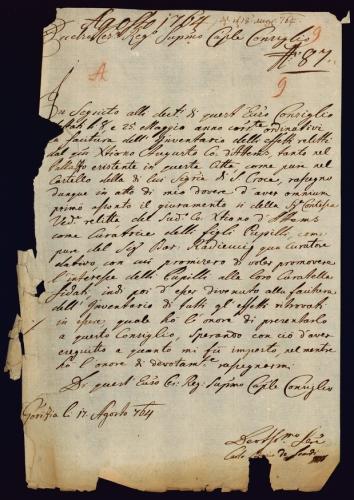 Agosto 1764
Eccelso Ces: Reg: Supmo Caple Consiglio
N: 87.
A
9
9
In Seguito alli dect: di quest' Eccso Consiglio
8, e 25. Maggio anno corrte ordinativi
la fattura dell' Inventario delli effetti relitti
dal qm Xtiano Augusto Co: d'Attems, tanto nel
Pallazzo existente in questa Città, come pure nel
Castello della di lui Sigria di S. Croce, rassegno
dunque in atti di mio dovere d'aver omnium
primo assonto il giuramento sì della Sigra Contessa
Vedva relitta del Sudto Co: Xtiano d'Attems
come Curatrice delli figli Pupilli, com
pure del Sigr Bar: Radieucig qua curatore
con cui promisero di voler promovere
l'interesse delli Pupilli alla loro Curatella
fidati, indi poi d'esser divenuto alla fattura
dell' Inventario di tutti gl' effetti ritrovati
in essere, quale hò l'onore di presentarlo
a questo Consiglio, sperando con ciò d'aver
eseguitto a quanto mi fù imposto, nel mentre
hò l'onore di devotamte rassegnarmi
Di quest Eccso Ces: Reg: Supmo Caple Consiglio
Gorizia li 17. Agosto 764
Devotsmo Serre
Carlo